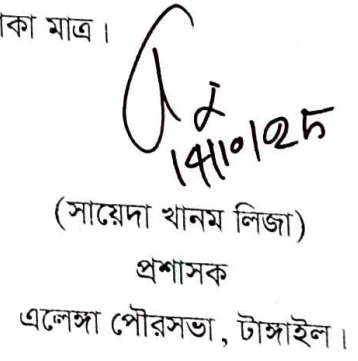 কা মাত্র।
14/10/25
(সায়েদা খানম লিজা)
প্রশাসক
এলেঙ্গা পৌরসভা, টাঙ্গাইল।